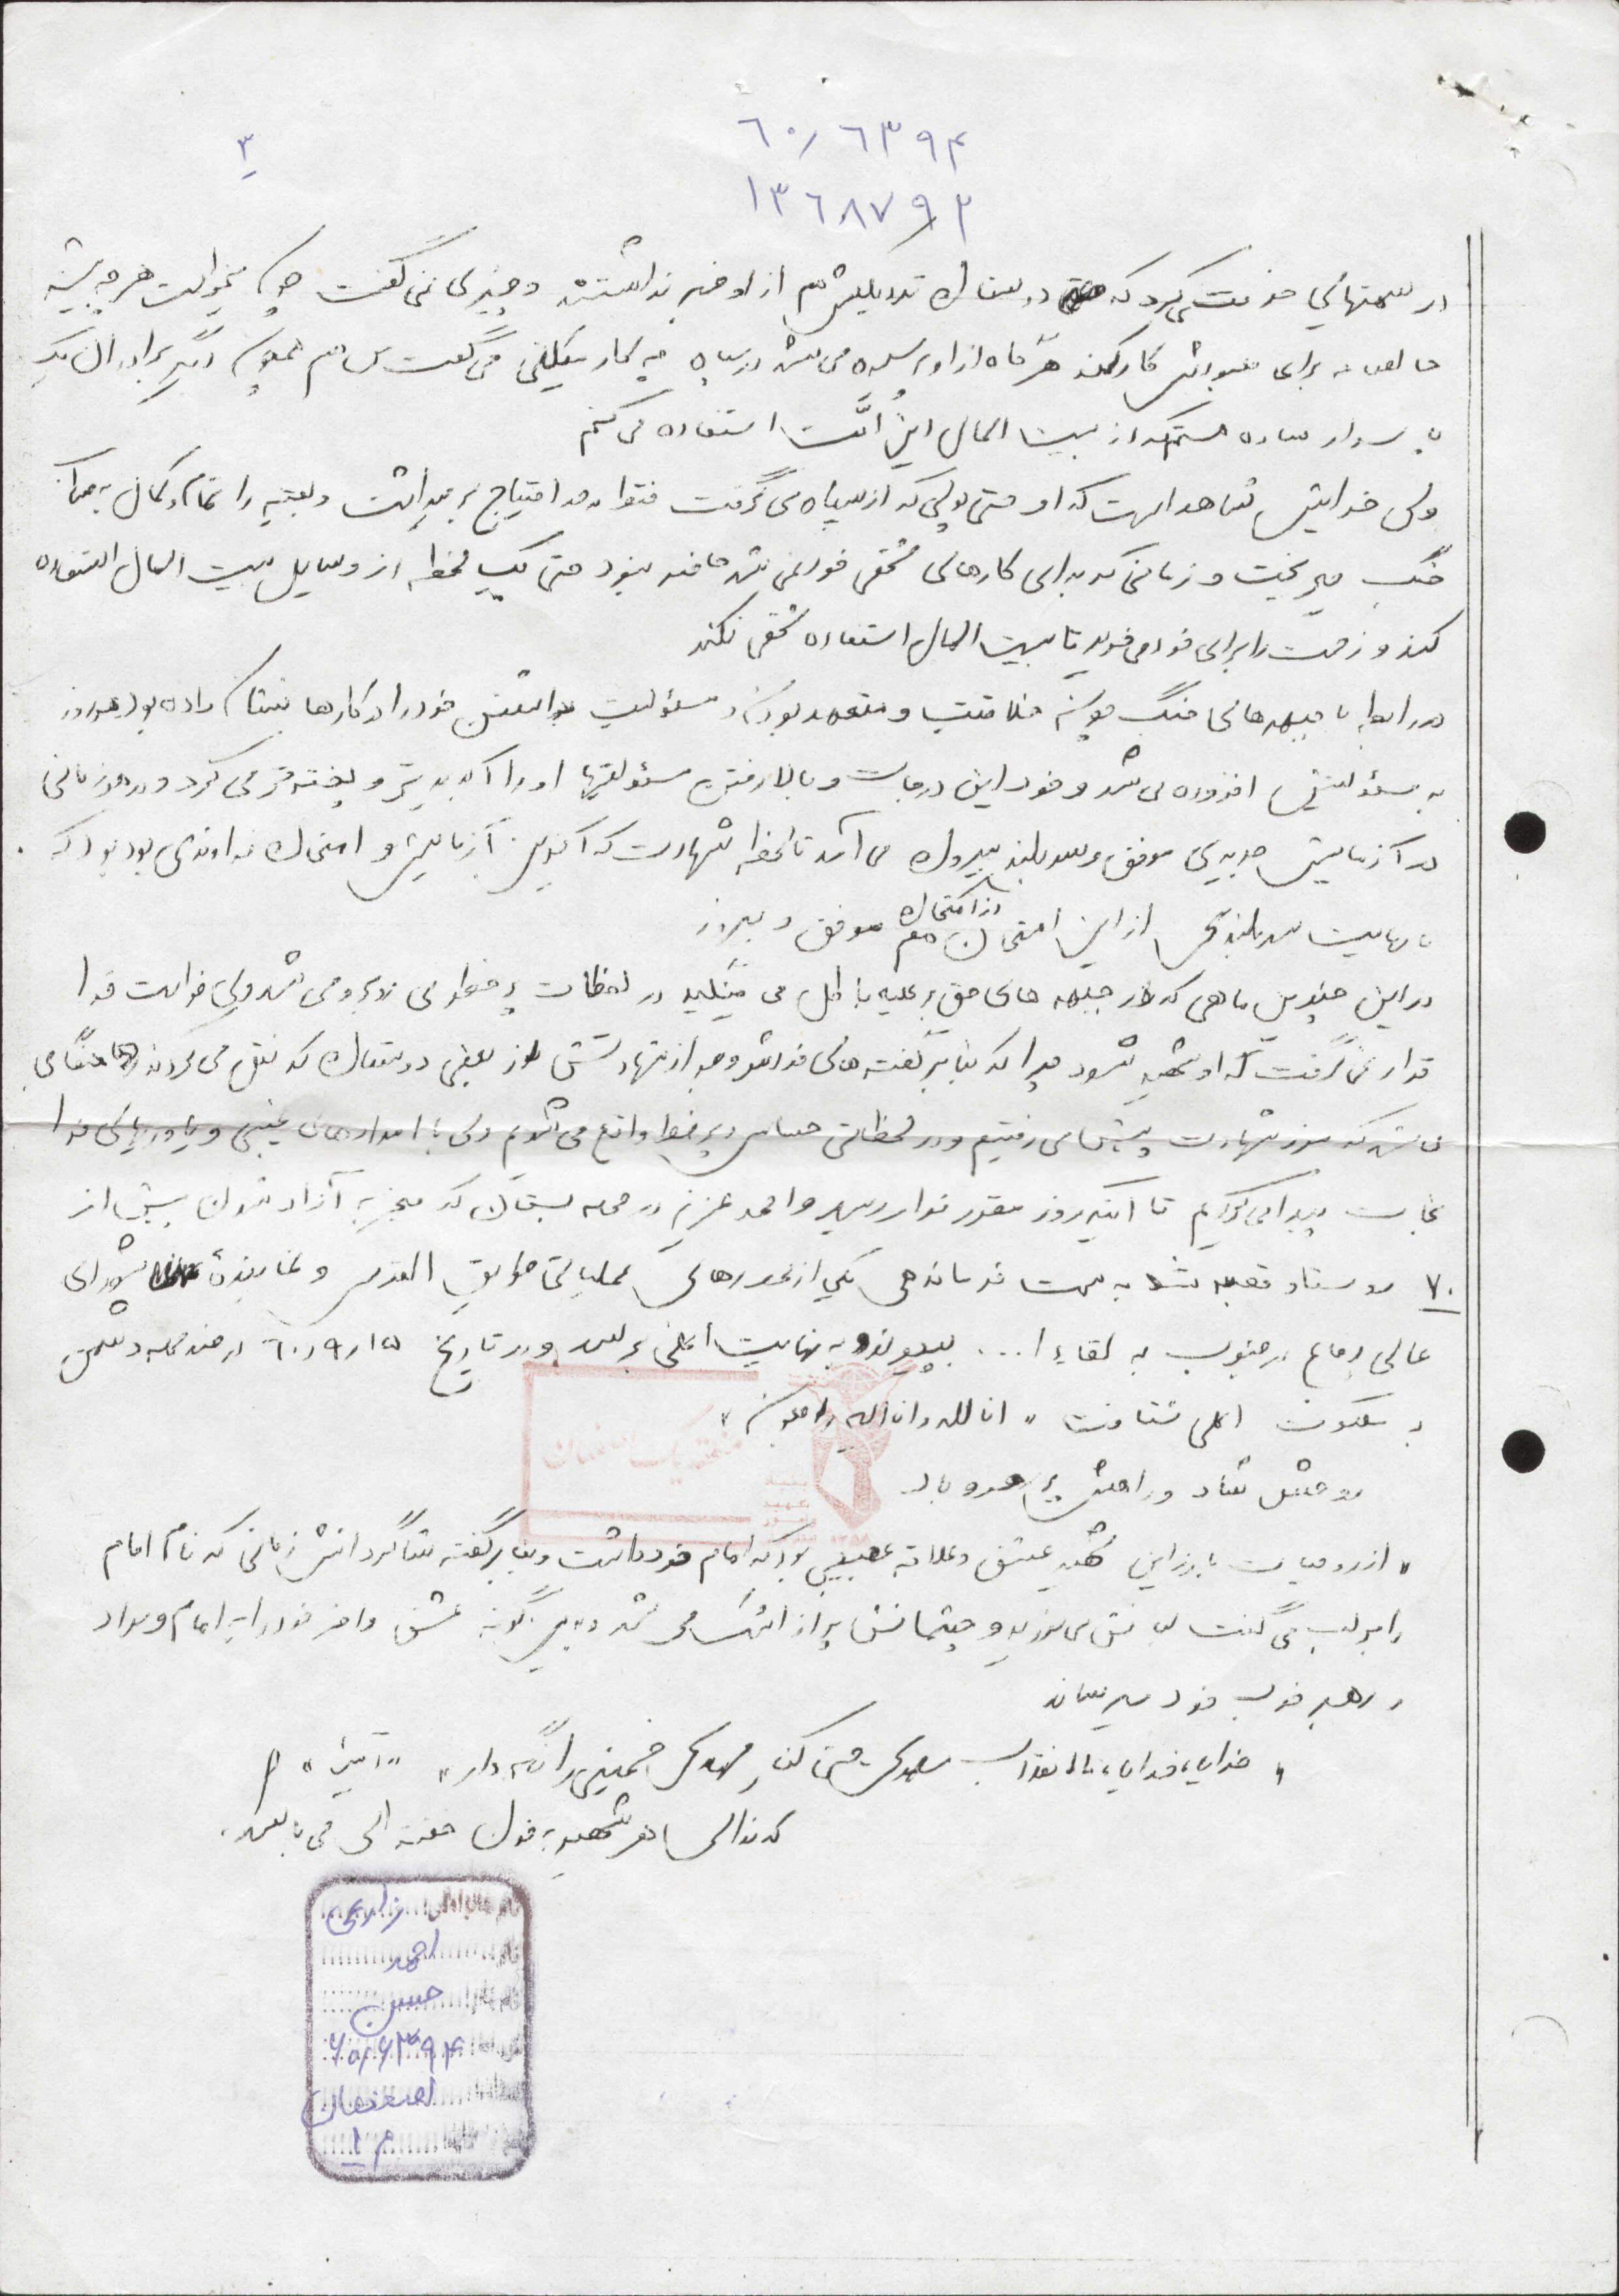 ۳
۶۰/۶۳۹۴
۱۳۶۸۷۹۳
در سمتهائی خدمت میکرد که دوستان نزدیکش هم از او خبر نداشتند و چیزی نمی گفت چون میخواست هر چه بیشتر
خالصانه برای معبودش کار کند هرگاه از او پرسیده می شد در سپاه چه کار میکنی می گفت من هم همچون دیگر برادران یک
پاسدار ساده هستم که از بیت المال این امت استفاده می کنم
ولی خدایش شاهد است که او حتی پولی که از سپاه می گرفت فقط به حد احتیاج بر میداشت و بقیه را تمام و کمال به
جنگ میریخت و زمانی که برای کارهای شخصی خود می شد حاضر نبود حتی یک لحظه از وسایل بیت المال استفاده
کند و زحمت را برای خود می خرید تا از بیت المال استفاده شخصی نکند
در رابطه با جبهه های جنگ چون خلاقیت و متعهد بودن و مسئولیت داشتن خود را در کارها نشان داده بود هر روز
به مسئولیتش افزوده می شد و خود این درجات و بالا رفتن مسئولیتها او را آبدیده تر و پخته تر می کرد و در هر زمانی
در آزمایش جدیدی موفق و سربلند بیرون می آمد تا لحظه شهادت که آخرین آزمایش و امتحان خداوندی بود که
با نهایت سربلندی از این امتحان هم موفق و پیروز
در این چندین ماهی که در جبهه های حق بر علیه باطل می جنگید در لحظات پر خطر می روبرو می شد ولی خواست خدا
قرار نمی گرفت که او شهید شود چرا که بنا بر گفته های خودش و بعد از شهادتش از بعضی دوستان که نقل می کردند هنگامی
می شد که مرز شهادت پیش می رفتیم و در لحظاتی حساس و پر خطر واقع می شویم ولی با امدادهای غیبی و یاوریهای خدا
نجات پیدا می کردیم تا اینکه روز مقرر فرا رسید و احمد عزیز در حمله بستان که منجر به آزاد شدن بیش از
۷۰ روستا و قصبه شد به سمت فرماندهی یکی از محورهای عملیاتی طریق القدس و نماینده شورای
عالی دفاع در جنوب به لقاء ا... بپیوندد به نهایت اعلی برسد و در تاریخ ۶۰/۹/۱۵ در ضد حمله دشمن
به ملکوت اعلی شتافت " انا لله و انا الیه راجعون "
روحش شاد و راهش پر رهرو باد
" از روحیات بارز این شهید عشق و علاقه عجیبی بود که به امام خود داشت و بنا بر گفته شاگردانش زمانی که نام امام
را بر لب می گفت لبانش می لرزید و چشمانش پر از اشک می شد و بدین گونه عشق وافر خود را به امام و مراد
و رهبر خوب خود میرساند
" خدایا، خدایا، تا انقلاب مهدی حتی کنار مهدی خمینی را نگه دار " " آمین "
که ندای هر شهید به خون خفته ای می باشد.
نام خانوادگی زارعی
نام احمد
حسن
۶۰/۶۳۹۴
اصفهان
م ۱